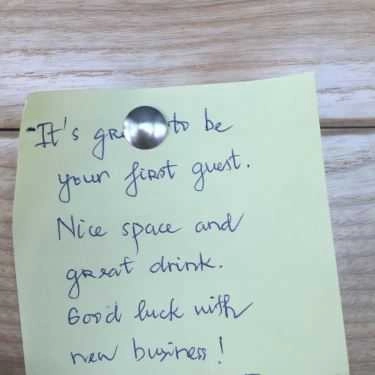 It's great to be
your first guest.
Nice space and
great drink.
Good luck with
new business!